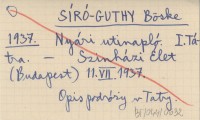 SÍRÓ-GUTHY Böske
1937. Nyári utinapló. I. Tá-
tra. – Szinházi Élet
(Budapest) 11.VII.1937.
Opis podróży w Tatry